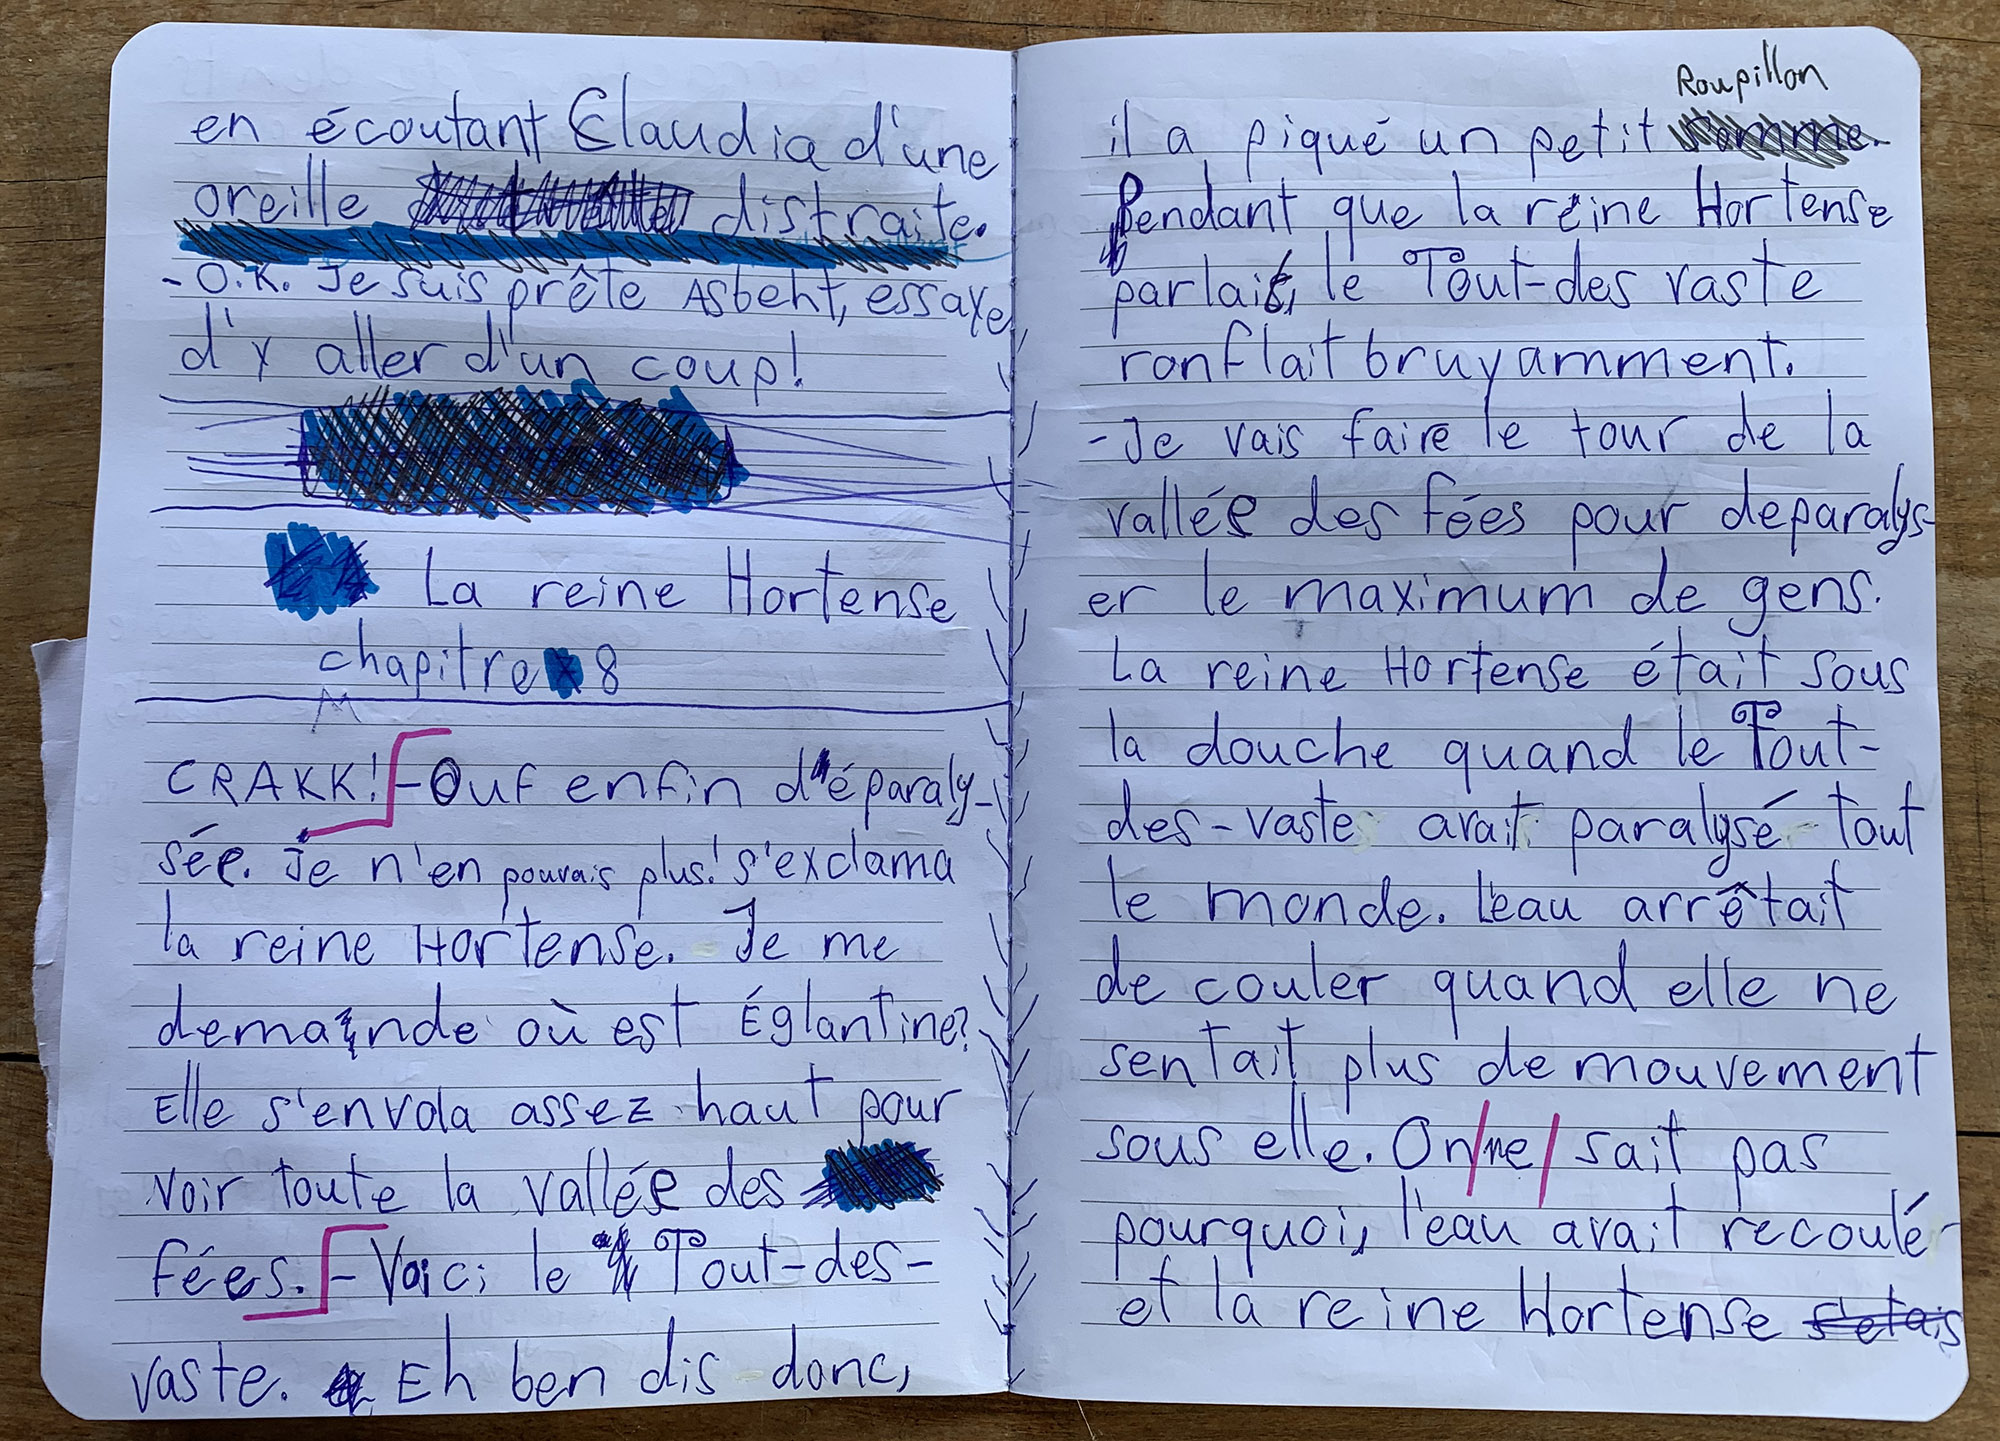 en écoutant Claudia d'une
oreille distraite.
- O.K. Je suis prête Asbeht, essaye
d'y aller d'un coup!
La reine Hortense
chapitre 8
CRAKK! - Ouf enfin d'éparaly-
sée. Je n'en pouvais plus! s'exclama
la reine Hortense. - Je me
demande où est Églantine?
Elle s'envola assez haut pour
voir toute la vallée des
fées. - Voici le Tout-des-
vaste. Eh ben dis-donc,
Roupillon
il a piqué un petit somme.
Pendant que la reine Hortense
parlait, le Tout-des vaste
ronflait bruyamment.
- Je vais faire le tour de la
vallée des fées pour deparalys-
er le maximum de gens.
La reine Hortense était sous
la douche quand le Tout-
des-vaste avait paralysé tout
le monde. L'eau arrêtait
de couler quand elle ne
sentait plus de mouvement
sous elle. On/ne/sait pas
pourquoi, l'eau avait recoulé
et la reine Hortense s'etais